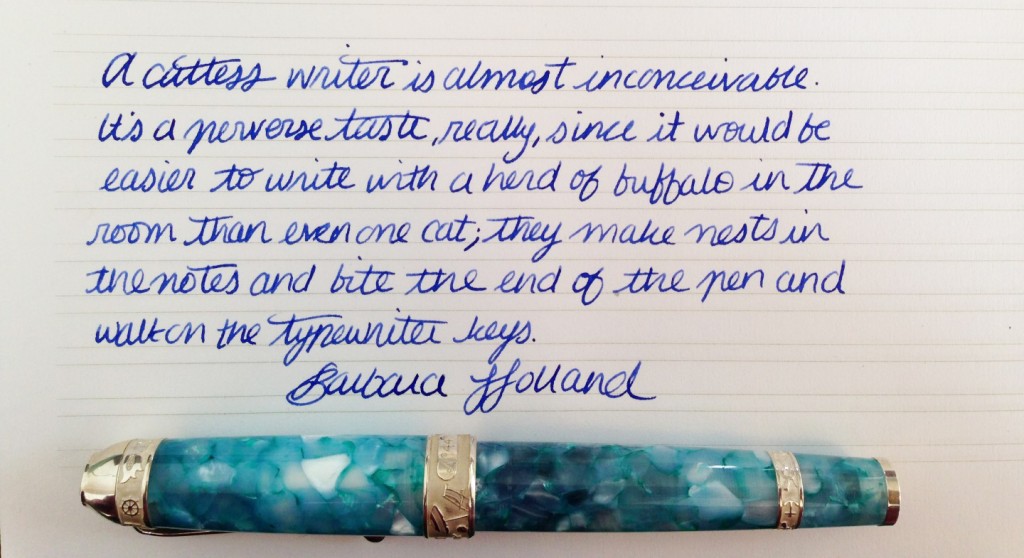 A catless writer is almost inconceivable.
It's a perverse taste, really, since it would be
easier to write with a herd of buffalo in the
room than even one cat; they make nests in
the notes and bite the end of the pen and
walk on the typewriter keys.
Barbara Holland